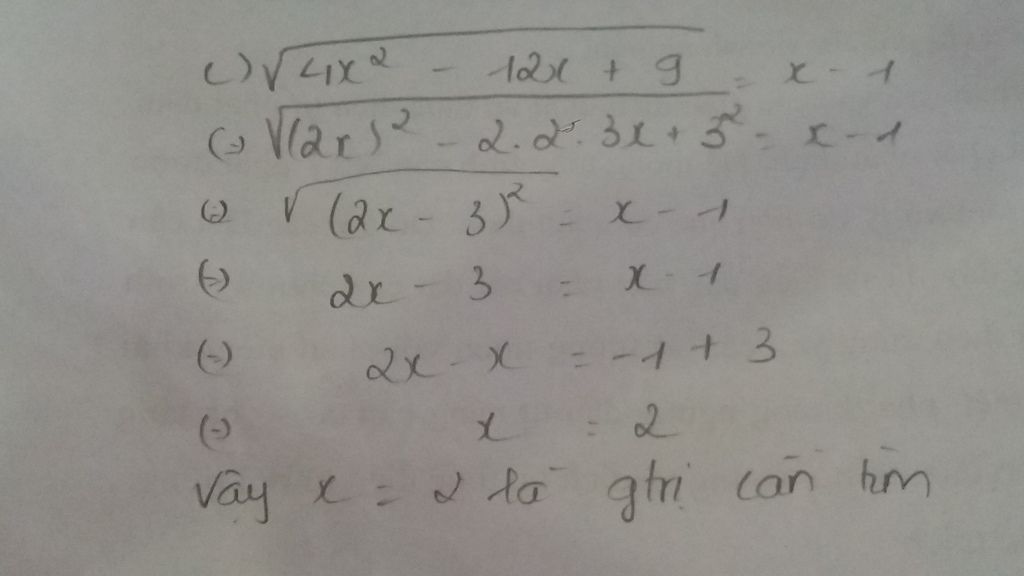 c) √(4x² - 12x + 9) = x - 1
(=) √((2x)² - 2.2.3x + 3²) = x - 1
(=) √((2x - 3)²) = x - 1
(=) 2x - 3 = x - 1
(=) 2x - x = -1 + 3
(=) x = 2
Vậy x = 2 là gtrị cần tìm